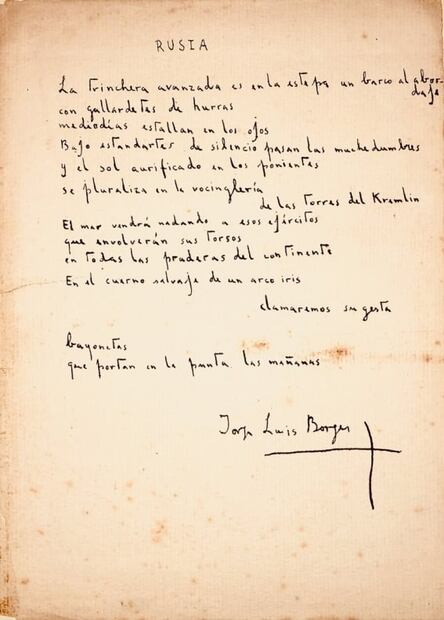 RUSIA
La trinchera avanzada es en la estepa un barco al abordaje
con gallardetes de hurras
mediodías estallan en los ojos
Bajo estandartes de silencio pasan las muchedumbres
y el sol aurificado en los ponientes
se pluraliza en la vocinglería
de las torres del Kremlin
El mar vendrá nadando a esos ejércitos
que envolverán sus torsos
en todas las praderas del continente
En el cuerno salvaje de un arco iris
clamaremos su gesta
bayonetas
que portan en la punta las mañanas
Jorge Luis Borges